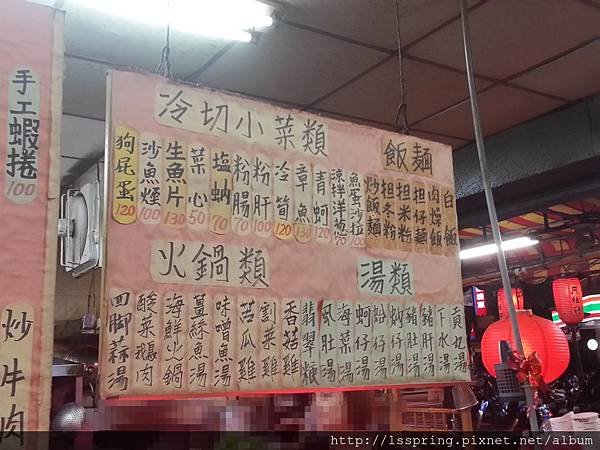 手工蝦捲
100
炒牛肉
冷切小菜類
狗屁蛋 120
沙魚煙 100
生魚片 130
菜心 50
塩蚋 70
粉腸 70
粉肝 100
冷筍 120
章魚 130
青蚵 120
涼拌洋葱 70
魚蛋沙拉 100
飯麵
炒飯麵
担冬粉
担米粉
担仔麵
肉燥飯
白飯
火鍋類
四脚蒜湯
酸菜鵝肉
海鮮火鍋
薑絲魚湯
味噌魚湯
苦瓜雞
刈菜雞
香菇雞
翡翠粮
湯類
風肚湯
海菜湯
蚵仔湯
蛤仔湯
豬肚湯
豬肝湯
下水湯
貢丸湯
http://lsspring.pixnet.net/album
痞客邦